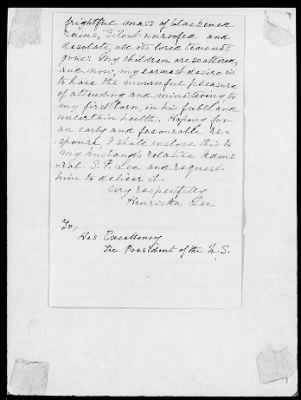 frightful mass of blackened
ruins, silent unroofed and
desolate, all its loved tenants
gone. My children are scattered,
and now, my earnest desire is
to have the mournful pleasure
of attending and ministering to
my first born in his feeble and
uncertain health. Hoping for
an early and favourable re-
sponse, I shall enclose this to
my husband's relative Admi
ral S. P. Lee and request
him to deliver it.
Very respectfully
Henrietta Lee
To,
His Excellency
The President of the U.S.